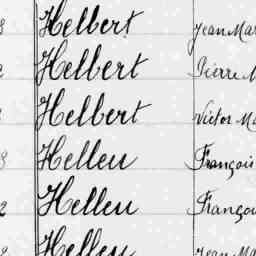 Helbert Jean Mar
Helbert Pierre M
Helbert Victor Ma
Helleu François
Helleu Françoi
Helleu Jean Ma